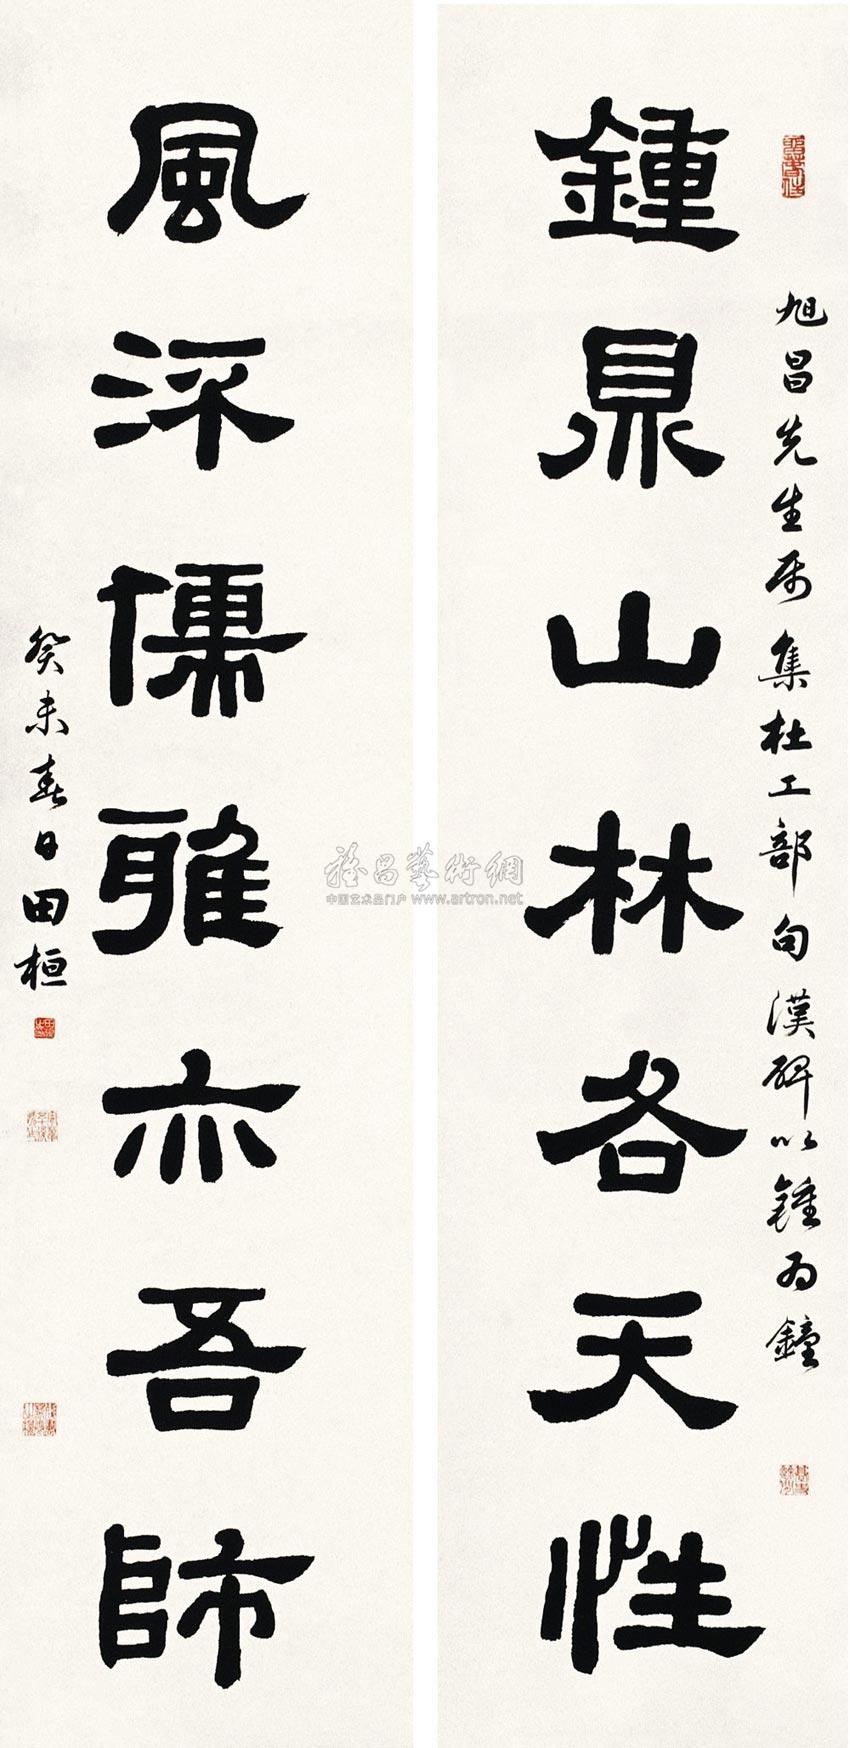 鍾鼎山林各天性
旭昌先生属集杜工部句漢碑以鍾為鐘
風流儒雅亦吾師
癸未春日田桓
雅昌藝術網
中国艺术品门户 www.artron.net